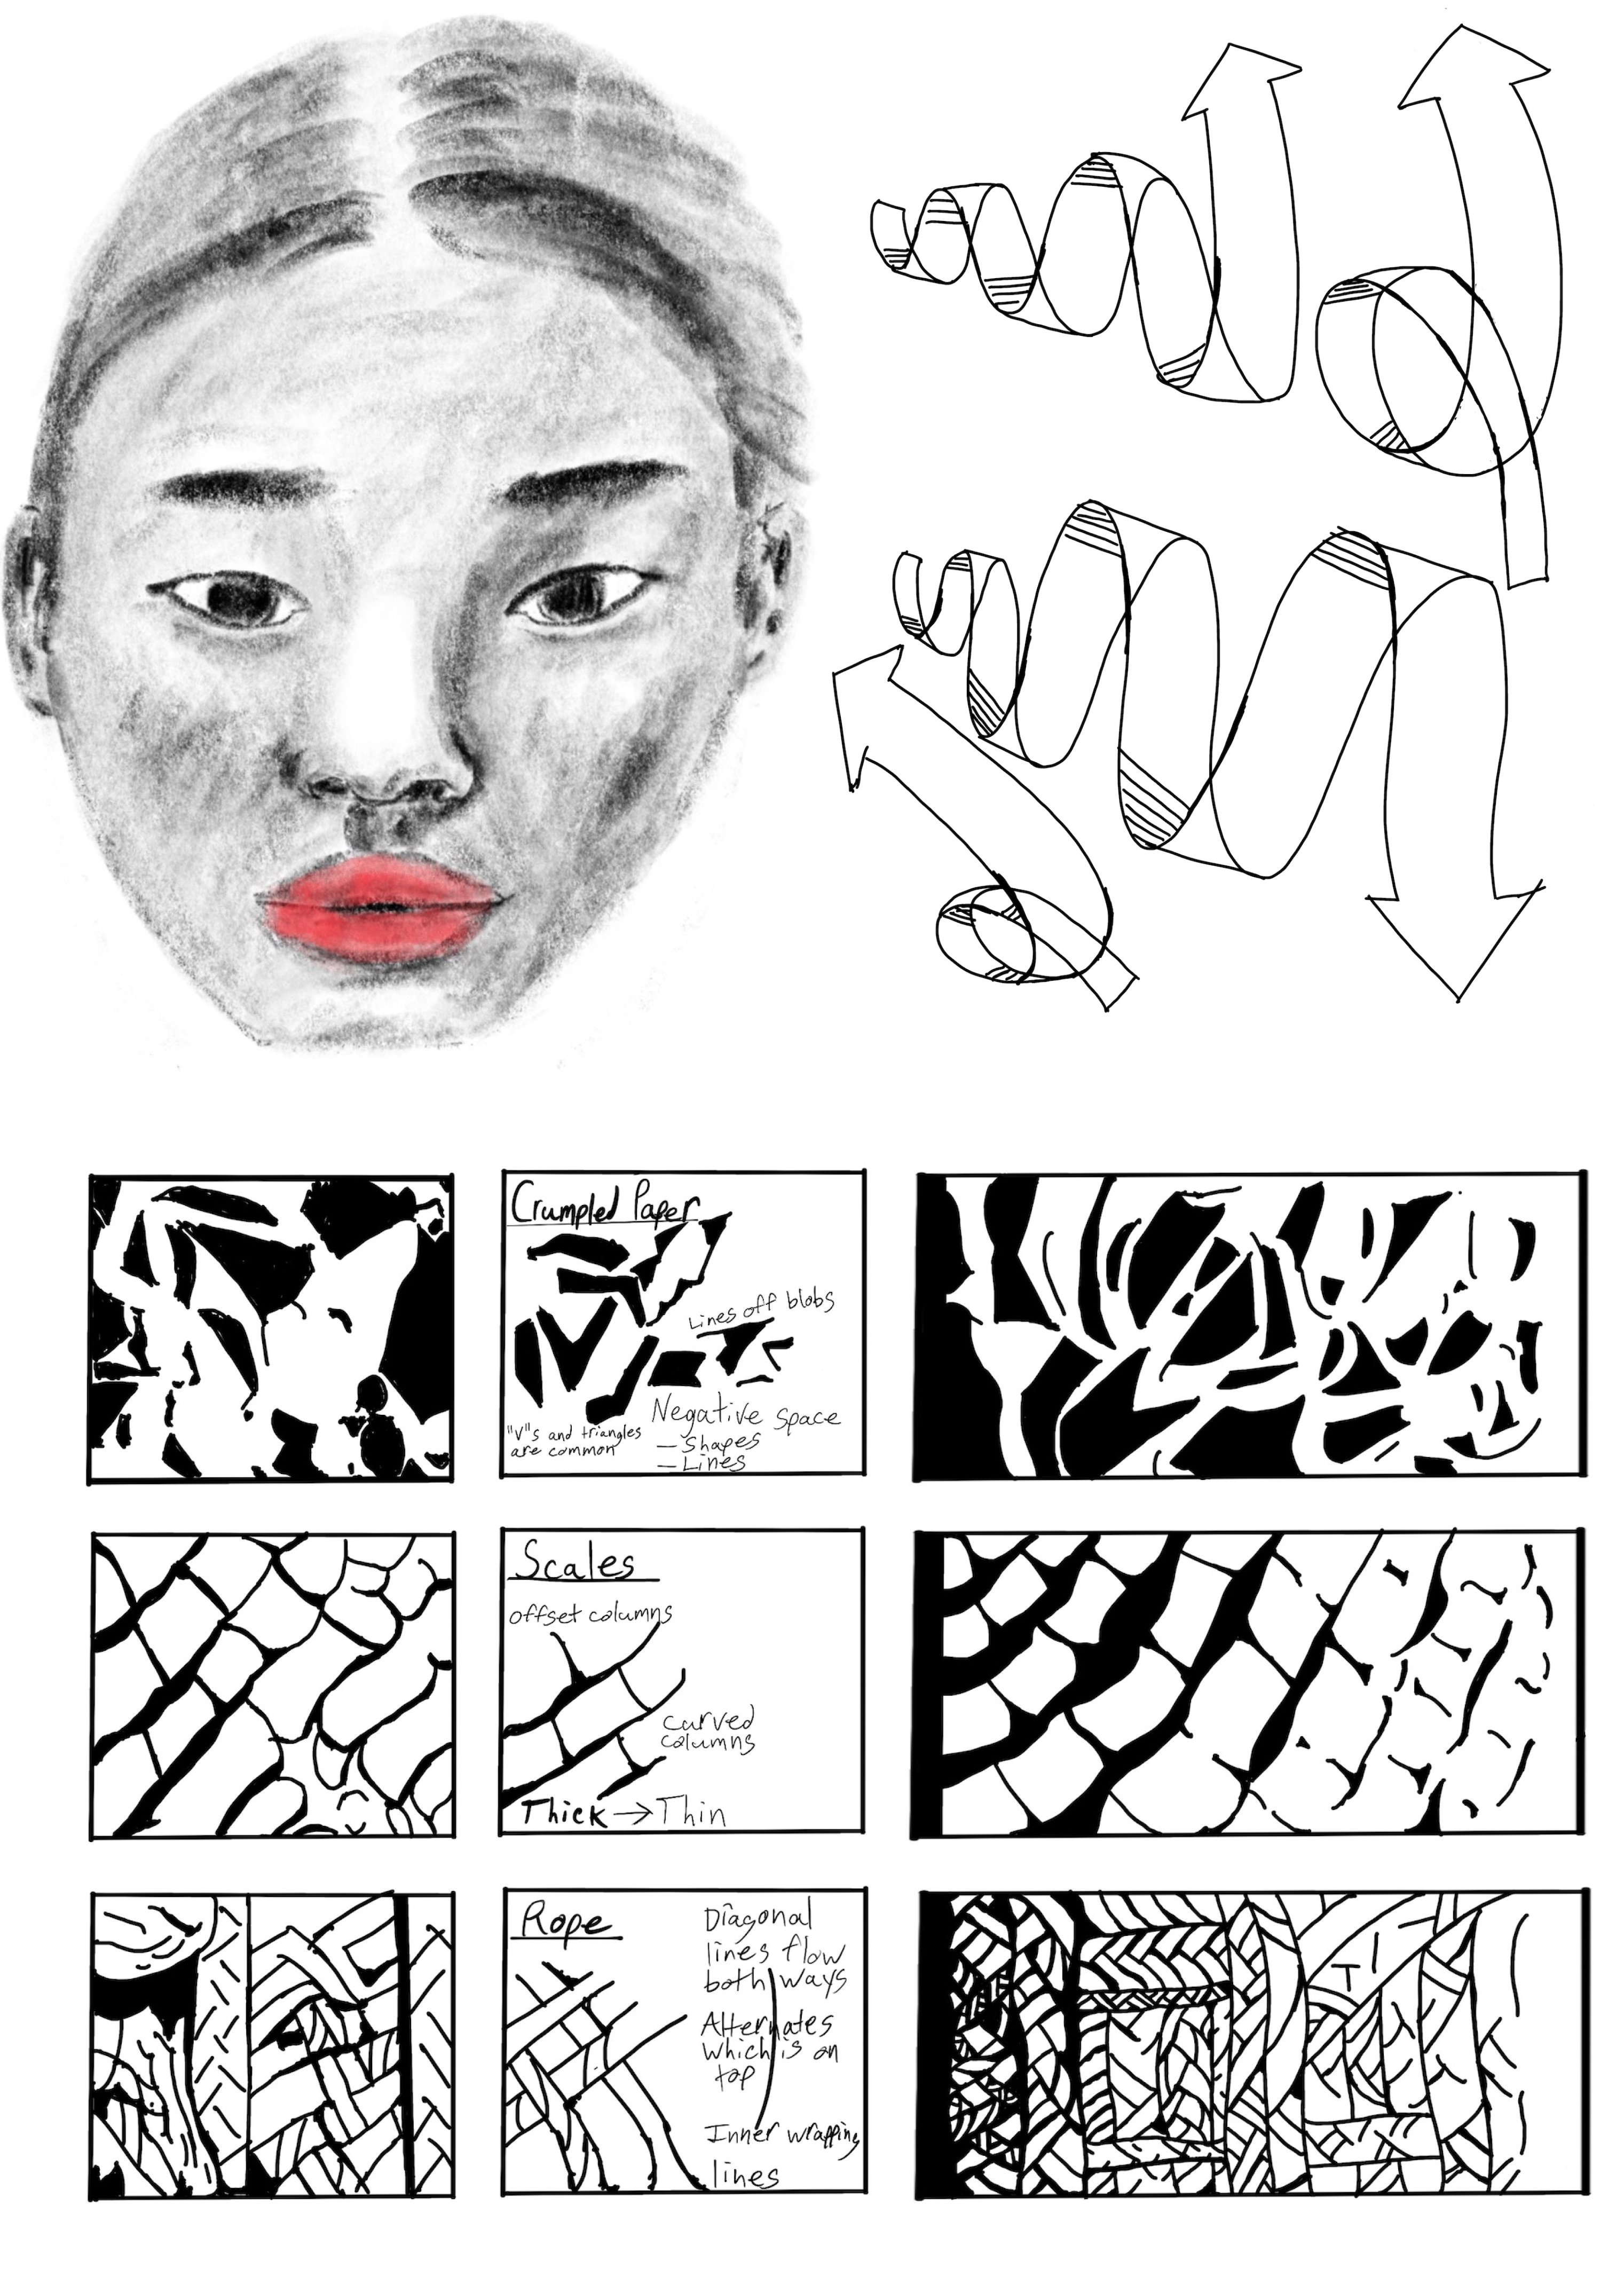 Crumpled Paper
Lines off blobs
"V"s and triangles
are common
Negative space
— Shapes
— Lines
Scales
offset columns
curved
columns
Thick → Thin
Rope
Diagonal
lines flow
both ways
Alternates
which is on
top
Inner wrapping
lines